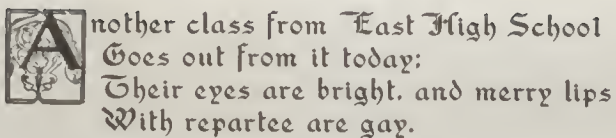 Another class from East High School
Goes out from it today:
Their eyes are bright. and merry lips
With repartee are gay.